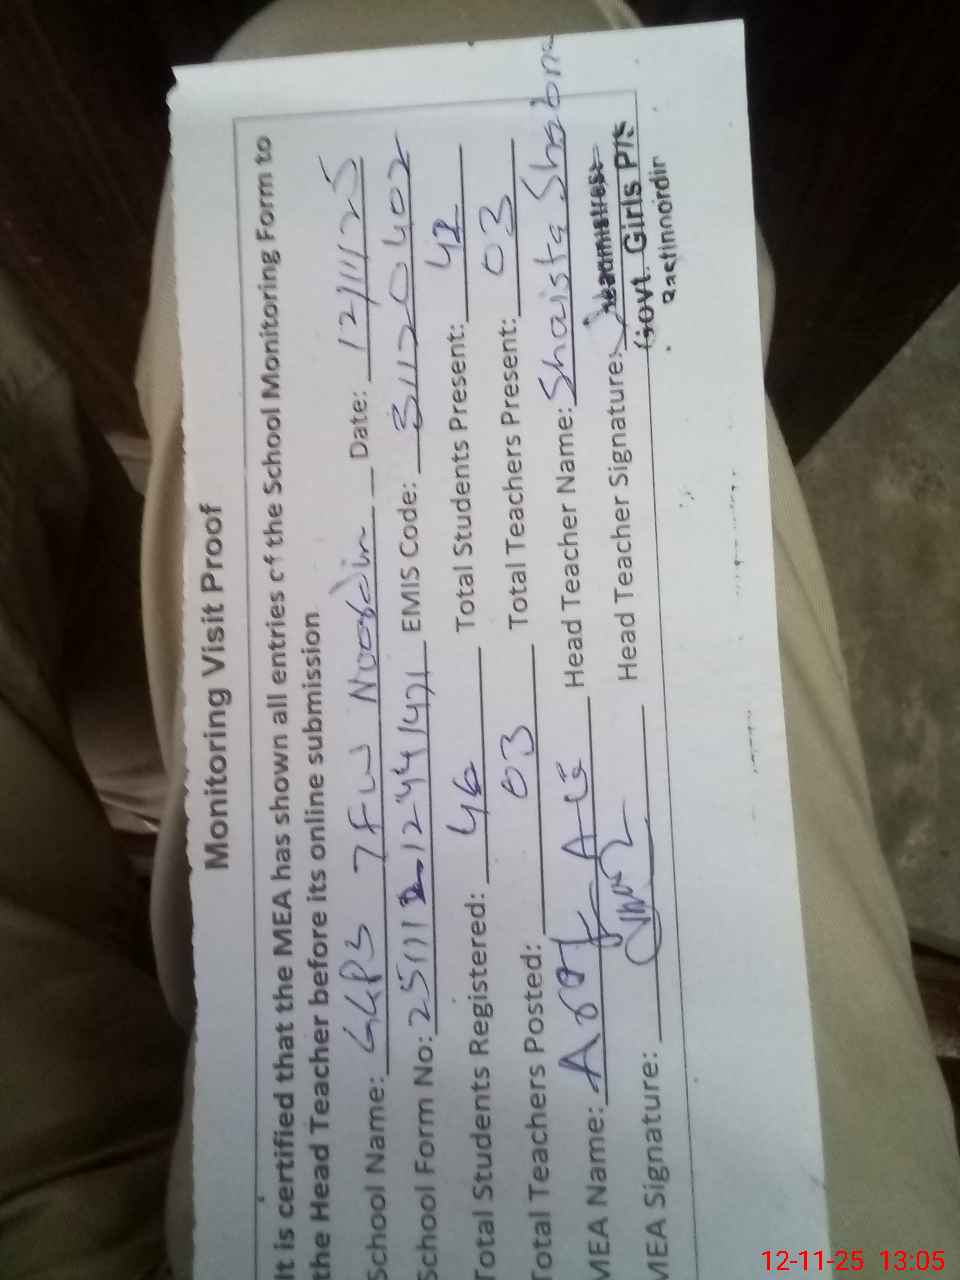 Monitoring Visit Proof
It is certified that the MEA has shown all entries of the School Monitoring Form to
the Head Teacher before its online submission
School Name: GGPS 7FW Noordin Date: 12/11/25
School Form No: EMIS Code: 31120402
Total Students Registered: 46 Total Students Present: 42
Total Teachers Posted: 03 Total Teachers Present: 03
MEA Name: Head Teacher Name: Shaista Shabna
MEA Signature: Head Teacher Signature:
Headmistress
Govt. Girls P/S
12-11-25 13:05